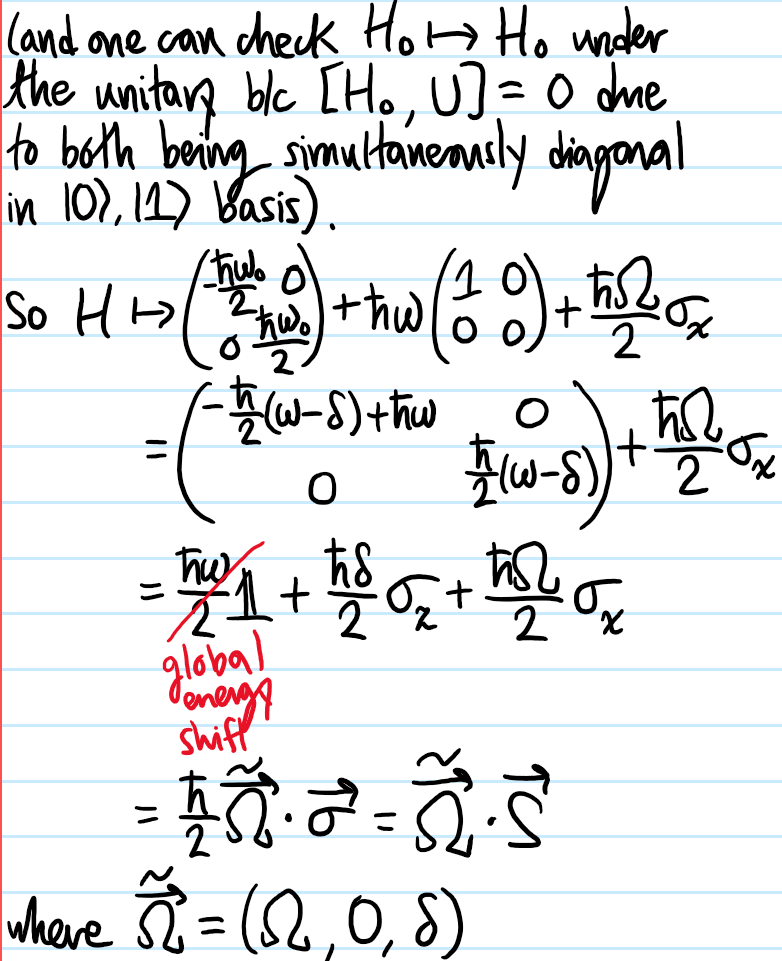 (and one can check H₀ ↦ H₀ under
the unitary b/c [H₀, U] = 0 due
to both being simultaneously diagonal
in |0⟩, |1⟩ basis).
So H ↦ (-ħω₀/2 0; 0 ħω₀/2) + ħω (1 0; 0 0) + ħΩ/2 σₓ
= (-ħ/2(ω-δ)+ħω 0; 0 ħ/2(ω-δ)) + ħΩ/2 σₓ
= ħω/2 𝟙 + ħδ/2 σ_z + ħΩ/2 σₓ
global
energy
shift
= ħ/2 Ω̃⃗ · σ⃗ = Ω̃⃗ · S⃗
where Ω̃⃗ = (Ω, 0, δ)